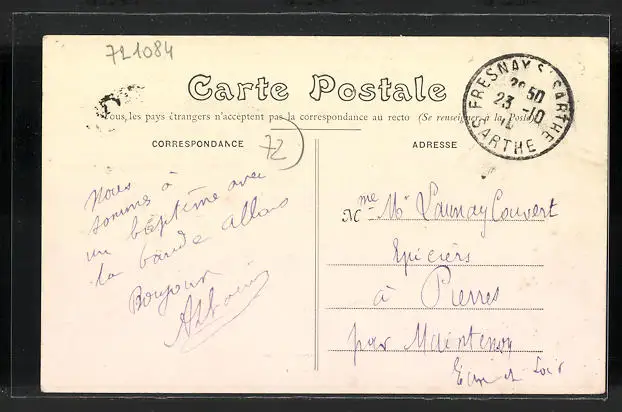 721084
Carte Postale
Tous les pays étrangers n'acceptent pas la correspondance au recto (Se renseigner à la Poste)
FRESNAY S/ SARTHE
23 -10
SARTHE
CORRESPONDANCE
72
ADRESSE
Nous
sommes à
un baptême avec
la bande allons
Bonjour
Mme Mr Launay Couvert
Epiciers
à Pierres
par Maintenon
Eure et Loir